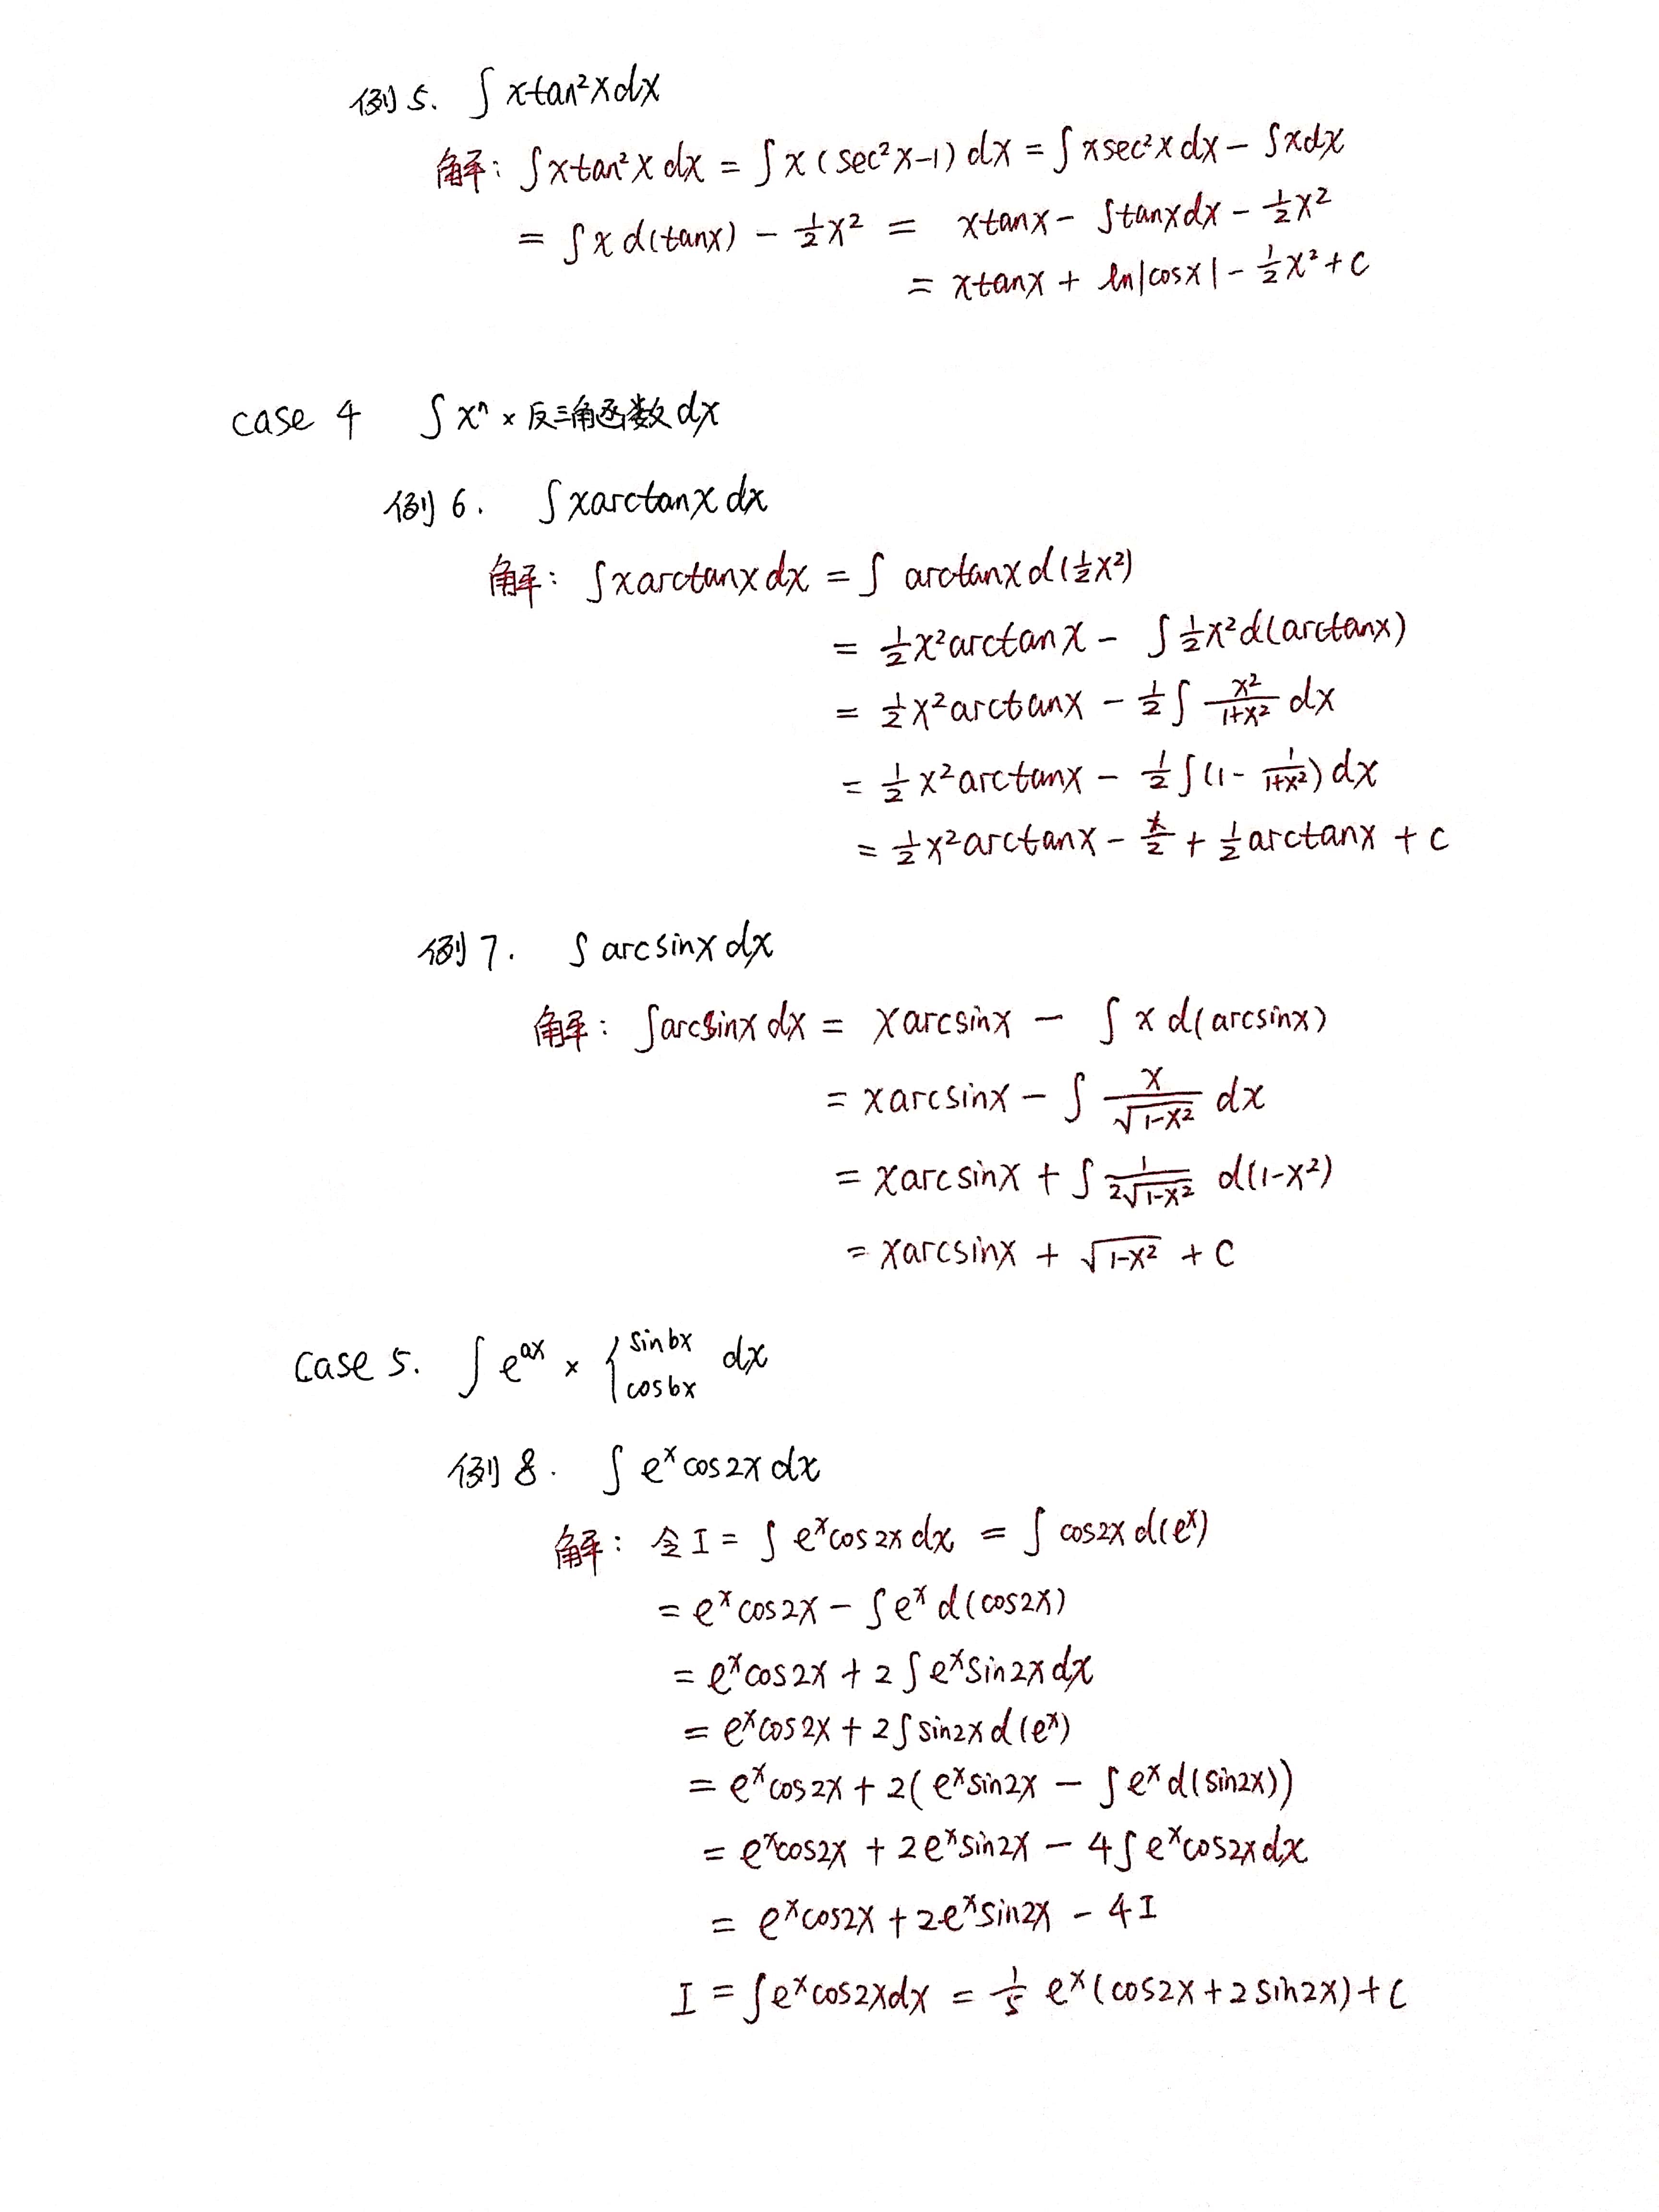 例5. ∫xtan²xdx
解: ∫xtan²xdx = ∫x(sec²x-1)dx = ∫xsec²xdx - ∫xdx
= ∫xd(tanx) - ½x² = xtanx - ∫tanxdx - ½x²
= xtanx + ln|cosx| - ½x² + C
case 4 ∫xⁿ × 反三角函数dx
例6. ∫xarctanxdx
解: ∫xarctanxdx = ∫arctanxd(½x²)
= ½x²arctanx - ∫½x²d(arctanx)
= ½x²arctanx - ½∫ x²/(1+x²) dx
= ½x²arctanx - ½∫(1 - 1/(1+x²))dx
= ½x²arctanx - x/2 + ½arctanx + C
例7. ∫arcsinxdx
解: ∫arcsinxdx = xarcsinx - ∫xd(arcsinx)
= xarcsinx - ∫ x/√(1-x²) dx
= xarcsinx + ∫ 1/(2√(1-x²)) d(1-x²)
= xarcsinx + √(1-x²) + C
case 5. ∫e^{ax} × { sinbx cosbx dx
例8. ∫eˣcos2xdx
解: 令I = ∫eˣcos2xdx = ∫cos2xd(eˣ)
= eˣcos2x - ∫eˣd(cos2x)
= eˣcos2x + 2∫eˣsin2xdx
= eˣcos2x + 2∫sin2xd(eˣ)
= eˣcos2x + 2(eˣsin2x - ∫eˣd(sin2x))
= eˣcos2x + 2eˣsin2x - 4∫eˣcos2xdx
= eˣcos2x + 2eˣsin2x - 4I
I = ∫eˣcos2xdx = ⅕ eˣ(cos2x + 2sin2x) + C